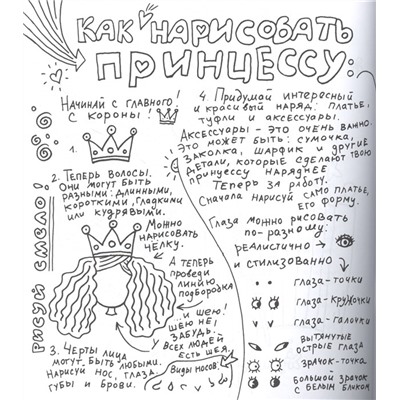 КАК НАРИСОВАТЬ
ПРИНЦЕССУ:
Начинай с главного!
с короны!
1.
2. Теперь волосы.
Они могут быть
разными: длинными,
короткими, гладкими
или кудрявыми.
Можно
нарисовать
чёлку.
А теперь
проведи
линию
подбородка
и шею!
шею не
забудь.
У всех людей
есть шея.
3. Черты лица
могут быть любыми.
Нарисуй нос, глаза,
губы и брови.
Виды носов:
Рисуй смело!
4. Придумай интересный
и красивый наряд: платье,
туфли и аксессуары.
Аксессуары - это очень важно.
Это может быть: сумочка,
заколка, шарфик и другие
детали, которые сделают твою
принцессу наряднее
Теперь за работу.
Сначала нарисуй само платье,
его форму.
Глаза можно рисовать
по-разному:
реалистично
и стилизованно
глаза-точки
глаза-кружочки
глаза-галочки
вытянутые
острые глаза
зрачок-точка
большой зрачок
с белым бликом